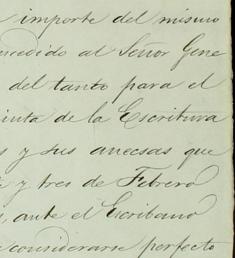 importe del mismo
ncedido al Señor Gene
del tanto para el
inta de la Escritura
s y sus anecsas que
y tres de Febrero
s, ante el Escribano
considerarse perfecto